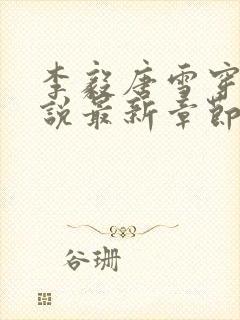 李毅唐雪穿
说最新章节
谷珊